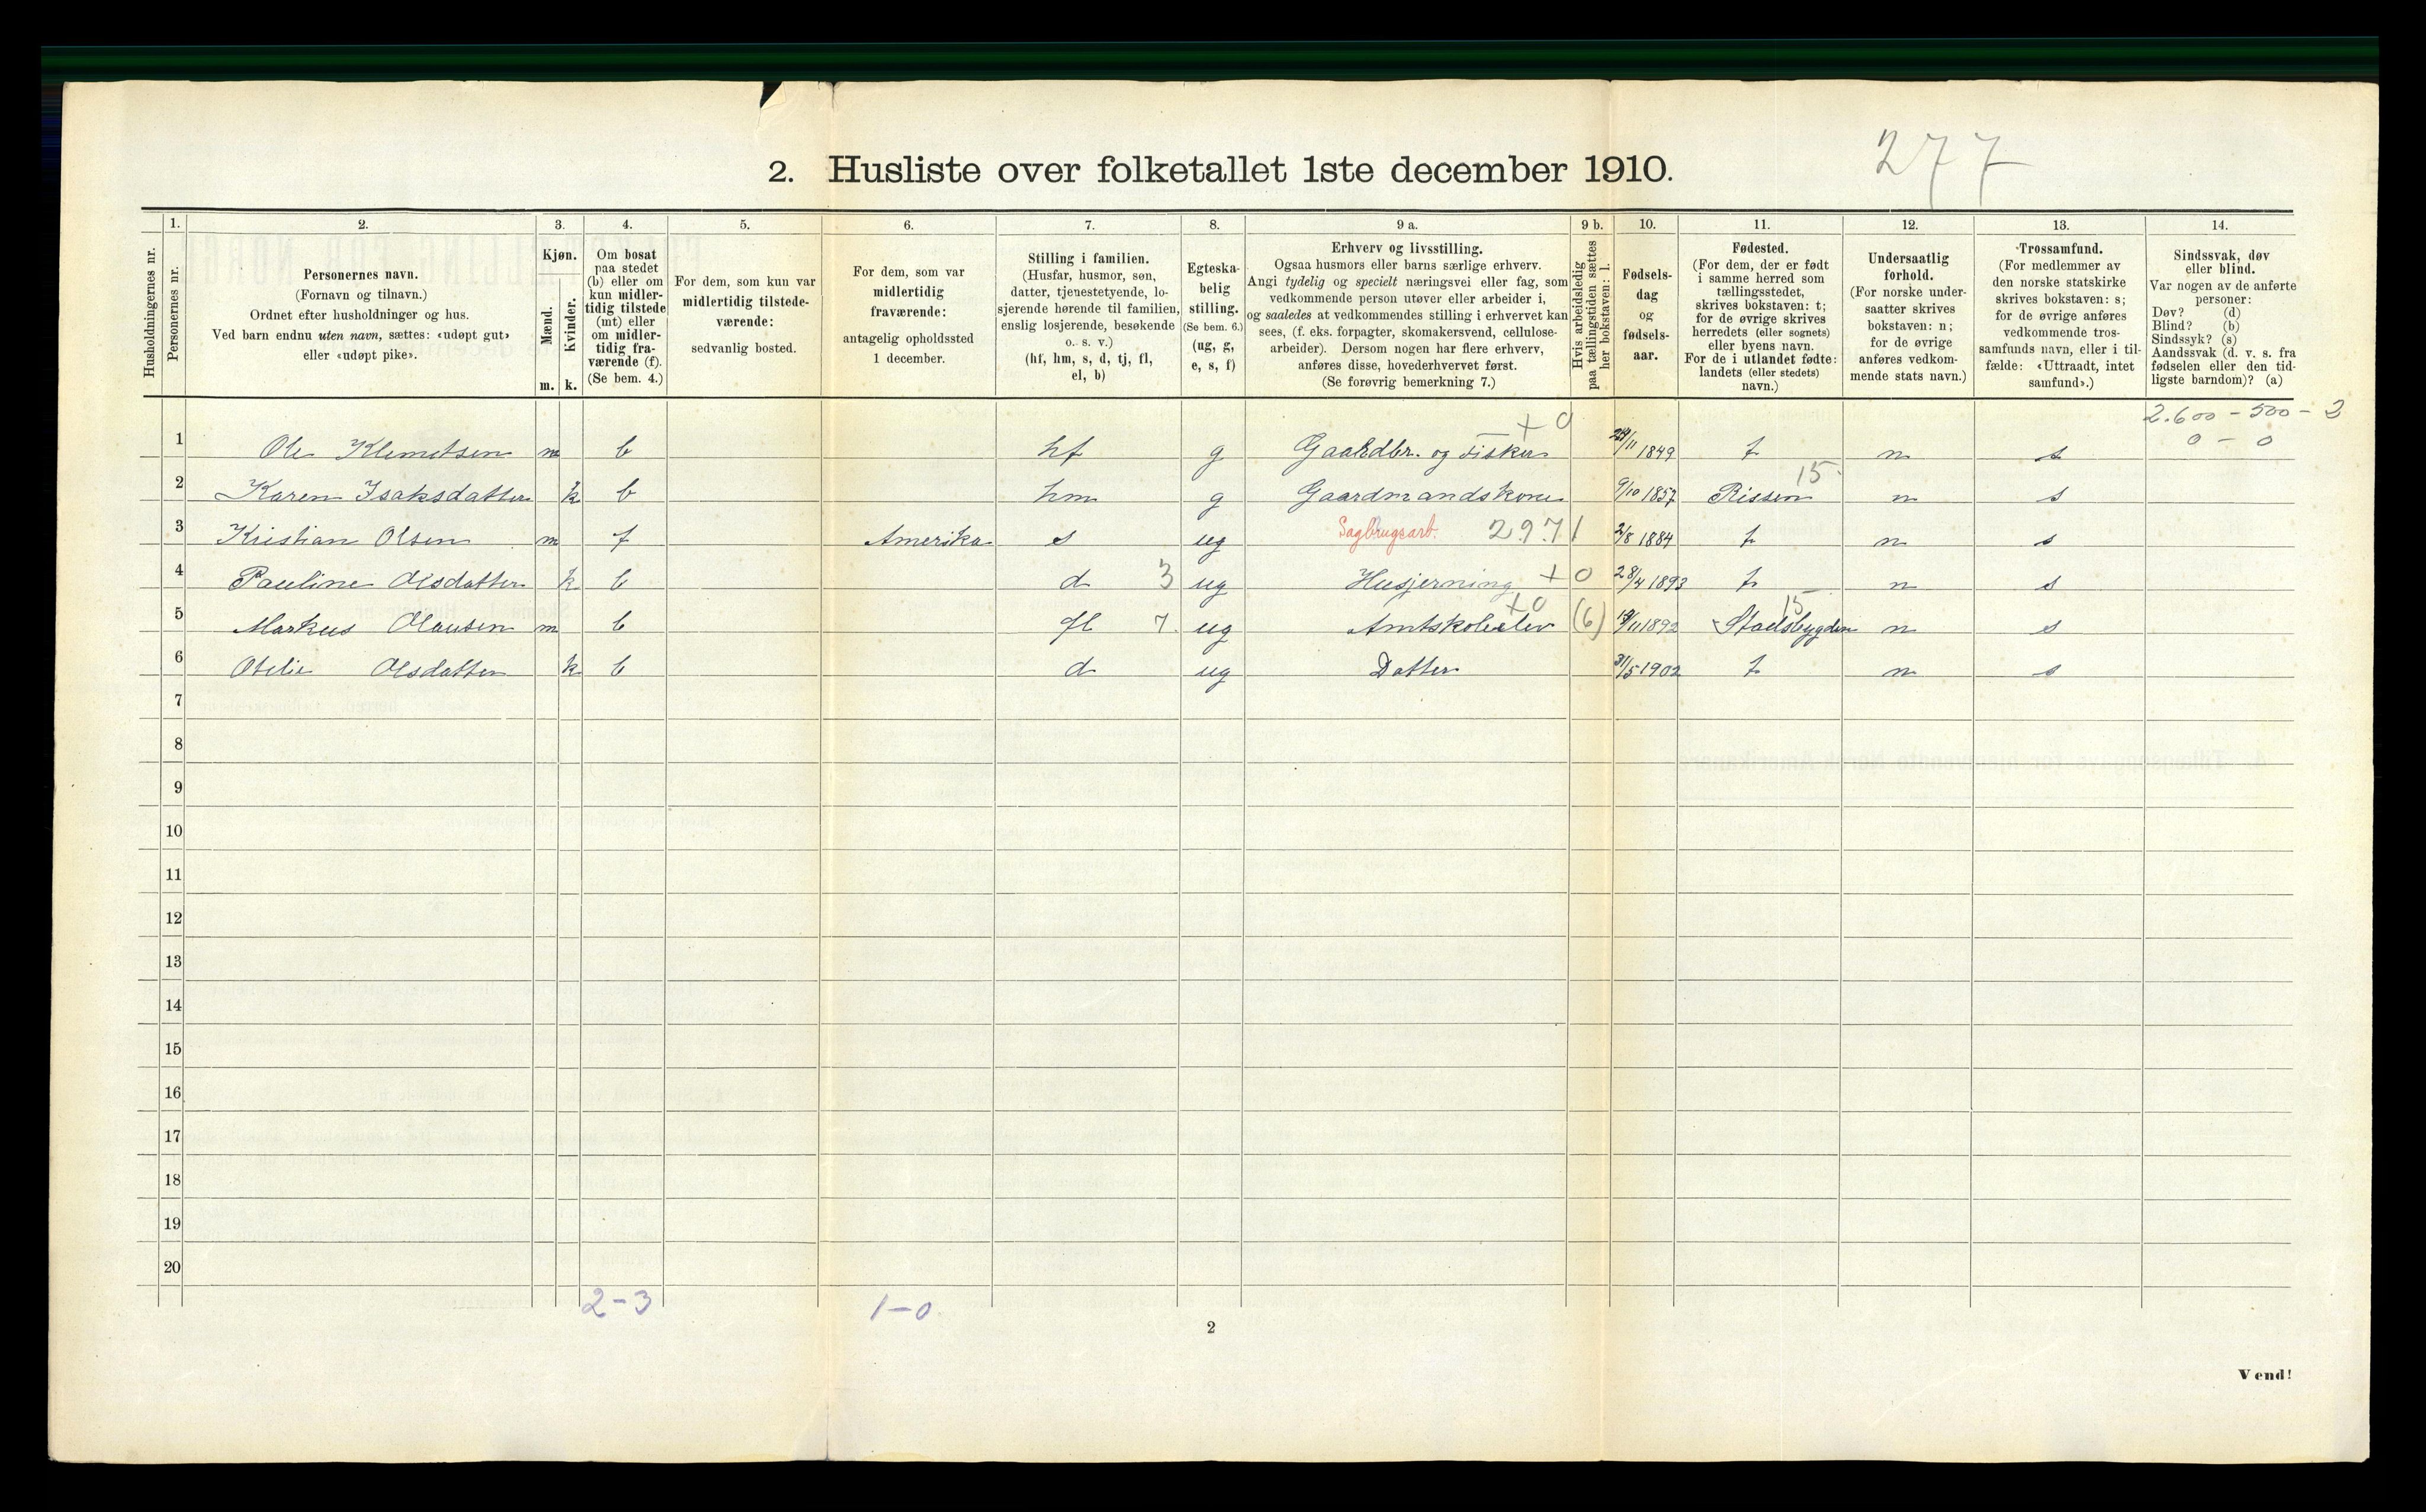 277
2. Husliste over folketallet 1ste december 1910.
Husholdningernes nr.
1.
Personernes nr.
2.
Personernes navn.
(Fornavn og tilnavn.)
Ordnet efter husholdninger og hus.
Ved barn endnu uten navn, sættes: «udøpt gut»
eller «udøpt pike».
3.
Kjøn.
Mænd.
Kvinder.
m. k.
4.
Om bosat
paa stedet
(b) eller om
kun midler-
tidig tilstede
(mt) eller
om midler-
tidig fra-
værende (f).
(Se bem. 4.)
5.
For dem, som kun var
midlertidig tilstede-
værende:
sedvanlig bosted.
6.
For dem, som var
midlertidig
fraværende:
antagelig opholdssted
1 december.
7.
Stilling i familien.
(Husfar, husmor, søn,
datter, tjenestetyende, lo-
sjerende hørende til familien,
enslig losjerende, besøkende
o. s. v.)
(hf, hm, s, d, tj, fl,
el, b)
8.
Egteska-
belig
stilling.
(Se bem. 6.)
(ug, g,
e, s, f)
9 a.
Erhverv og livsstilling.
Ogsaa husmors eller barns særlige erhverv.
Angi tydelig og specielt næringsvei eller fag, som
vedkommende person utøver eller arbeider i,
og saaledes at vedkommendes stilling i erhvervet kan
sees, (f. eks. forpagter, skomakersvend, cellulose-
arbeider). Dersom nogen har flere erhverv,
anføres disse, hovederhvervet først.
(Se forøvrig bemerkning 7.)
9 b.
Hvis arbeidsledig
paa tællingstiden sættes
her bokstaven: l.
10.
Fødsels-
dag
og
fødsels-
aar.
11.
Fødested.
(For dem, der er født
i samme herred som
tællingsstedet,
skrives bokstaven: t;
for de øvrige skrives
herredets (eller sognets)
eller byens navn.
For de i utlandet fødte:
landets (eller stedets)
navn.)
12.
Undersaatlig
forhold.
(For norske under-
saatter skrives
bokstaven: n;
for de øvrige
anføres vedkom-
mende stats navn.)
13.
Trossamfund.
(For medlemmer av
den norske statskirke
skrives bokstaven: s;
for de øvrige anføres
vedkommende tros-
samfunds navn, eller i til-
fælde: «Uttraadt, intet
samfund».)
14.
Sindssvak, døv
eller blind.
Var nogen av de anførte
personer:
Døv? (d)
Blind? (b)
Sindssyk? (s)
Aandssvak (d. v. s. fra
fødselen eller den tid-
ligste barndom)? (a)
+ 0 2.600 - 500 - 2
0 - 0
1 Ole Klemetsen m b hf g Gaardbr. og Fisker 24/11 1849 t n s
15
2 Karen Isaksdatter k b hm g Gaardmandskone 9/10 1857 Rissen n s
3 Kristian Olsen m f Amerika s ug Sagbrugsarb. 297 1 2/8 1884 t n s
4 Pauline Olsdatter k b d 3 ug Husjerning + 0 28/4 1893 t n s
+0 15
5 Markus Olausen m b fl 7. ug Amtskoleelev (6) /11 1892 Stadsbygden n s
6 Otelie Olsdatter k b d ug Datter 31/5 1902 t n s
7
8
9
10
11
12
13
14
15
16
17
18
19
20
2 - 3 1 - 0
2
Vend!